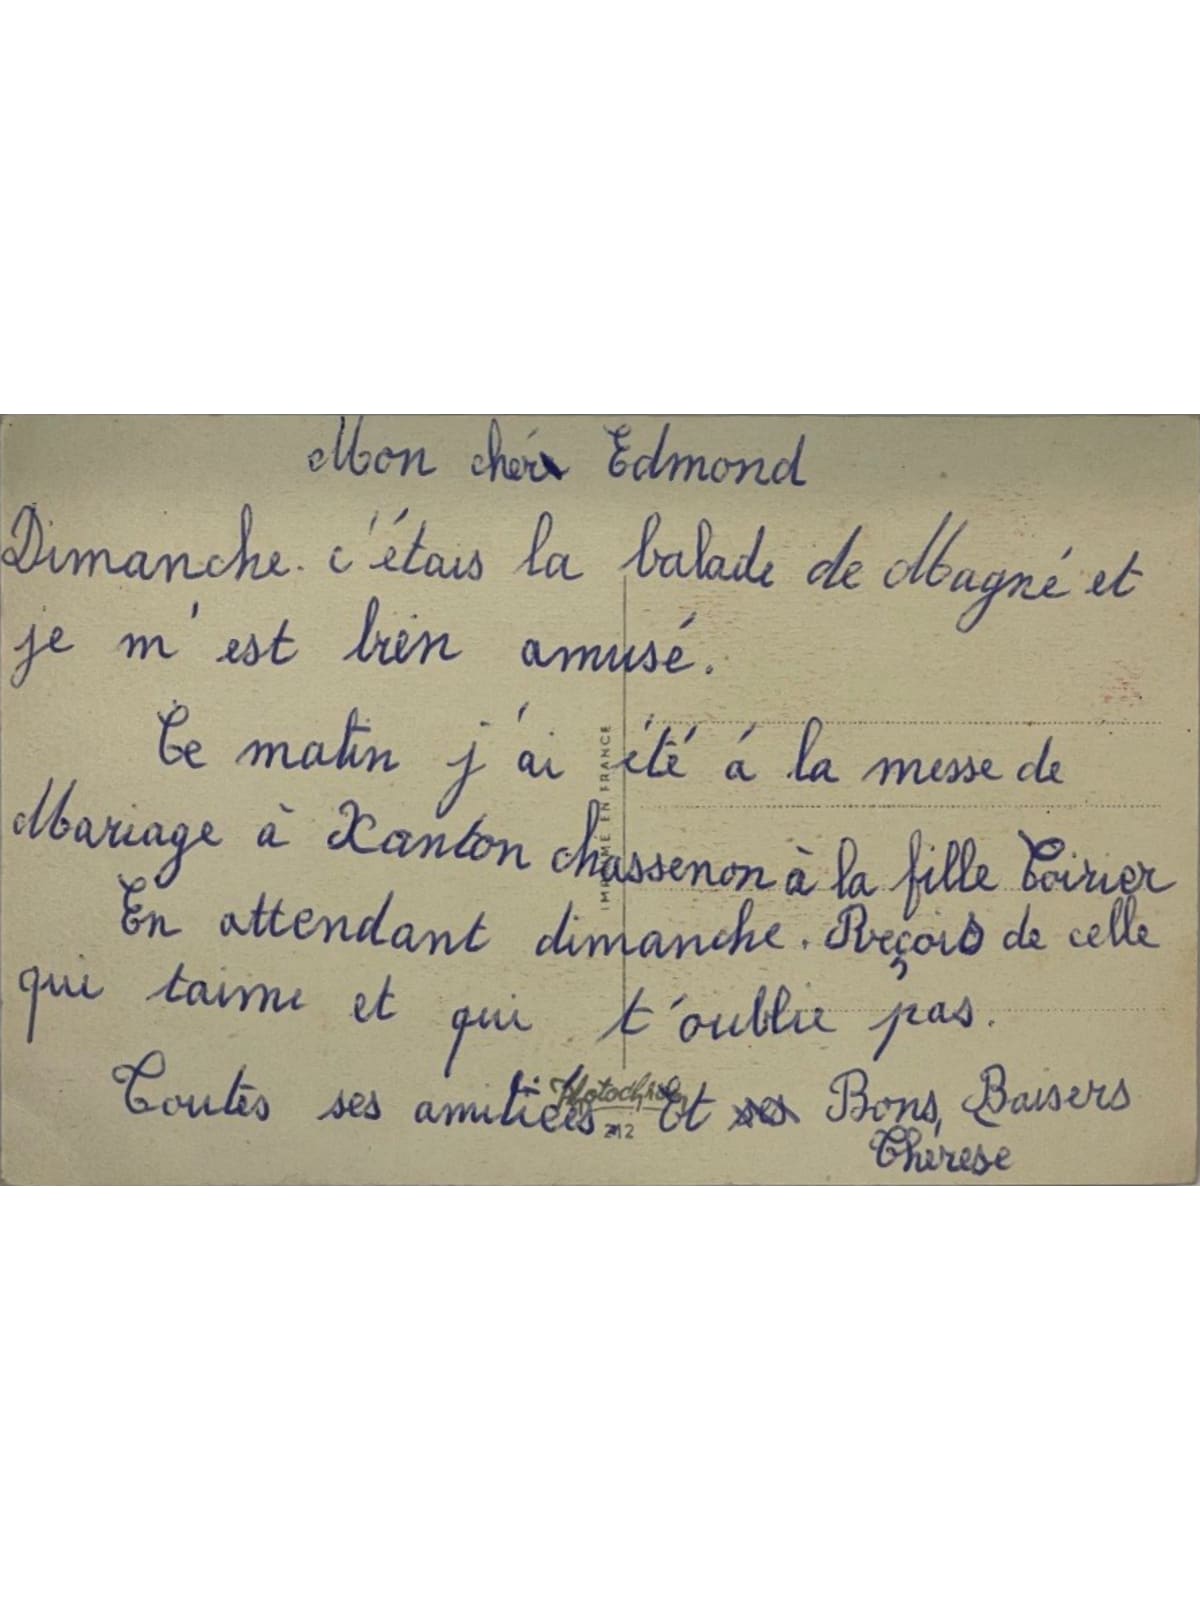 Mon chér Edmond
Dimanche. c'étais la balade de Magné et
je m'est bien amusé.
Ce matin j'ai été á la messe de
Mariage à Xanton chassenon à la fille Coirier
En attendant dimanche. Reçois de celle
qui taime et qui t'oublie pas.
Toutes ses amitiées Et ses Bons, Baisers
Thérèse
IMPRIMÉ EN FRANCE
Photochrom
212